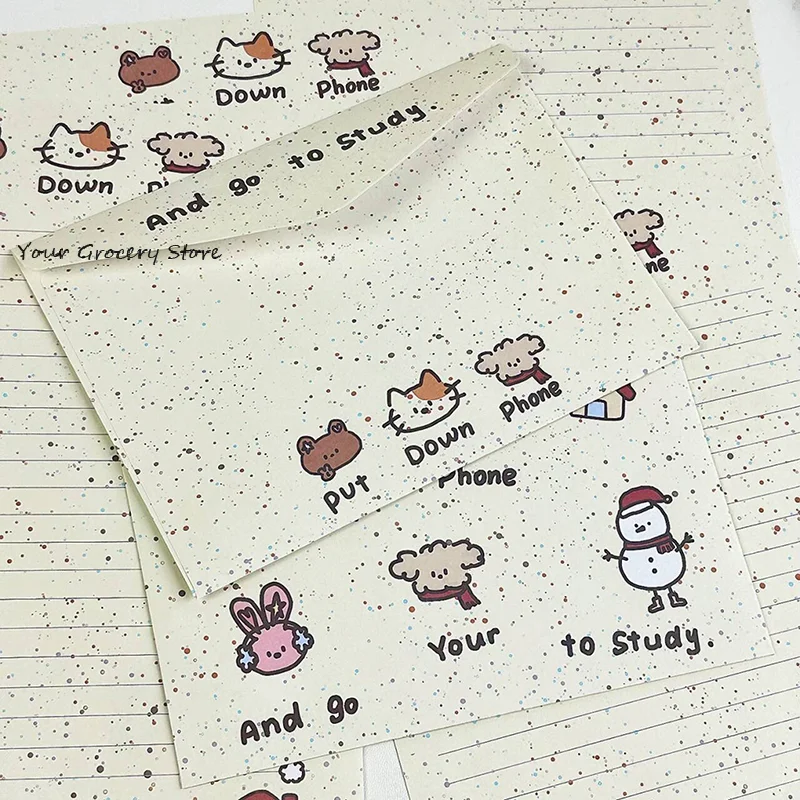 Down Phone
Down
And go to Study.
Your Grocery Store
Put Down Phone
Phone
Your
to Study.
And go